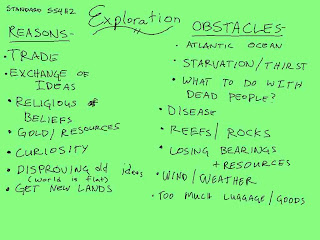 STANDARD SS4H2
Exploration
REASONS-
• TRADE
• EXCHANGE OF
IDEAS
• RELIGIOUS
BELIEFS
• GOLD/RESOURCES
• CURIOSITY
• DISPROVING old ideas
(world is flat)
• GET NEW LANDS
OBSTACLES-
• ATLANTIC OCEAN
• STARVATION/THIRST
• WHAT TO DO WITH
DEAD PEOPLE?
• DISEASE
• REEFS/ROCKS
• LOSING BEARINGS
+ RESOURCES
• WIND/WEATHER
• TOO MUCH LUGGAGE/GOODS